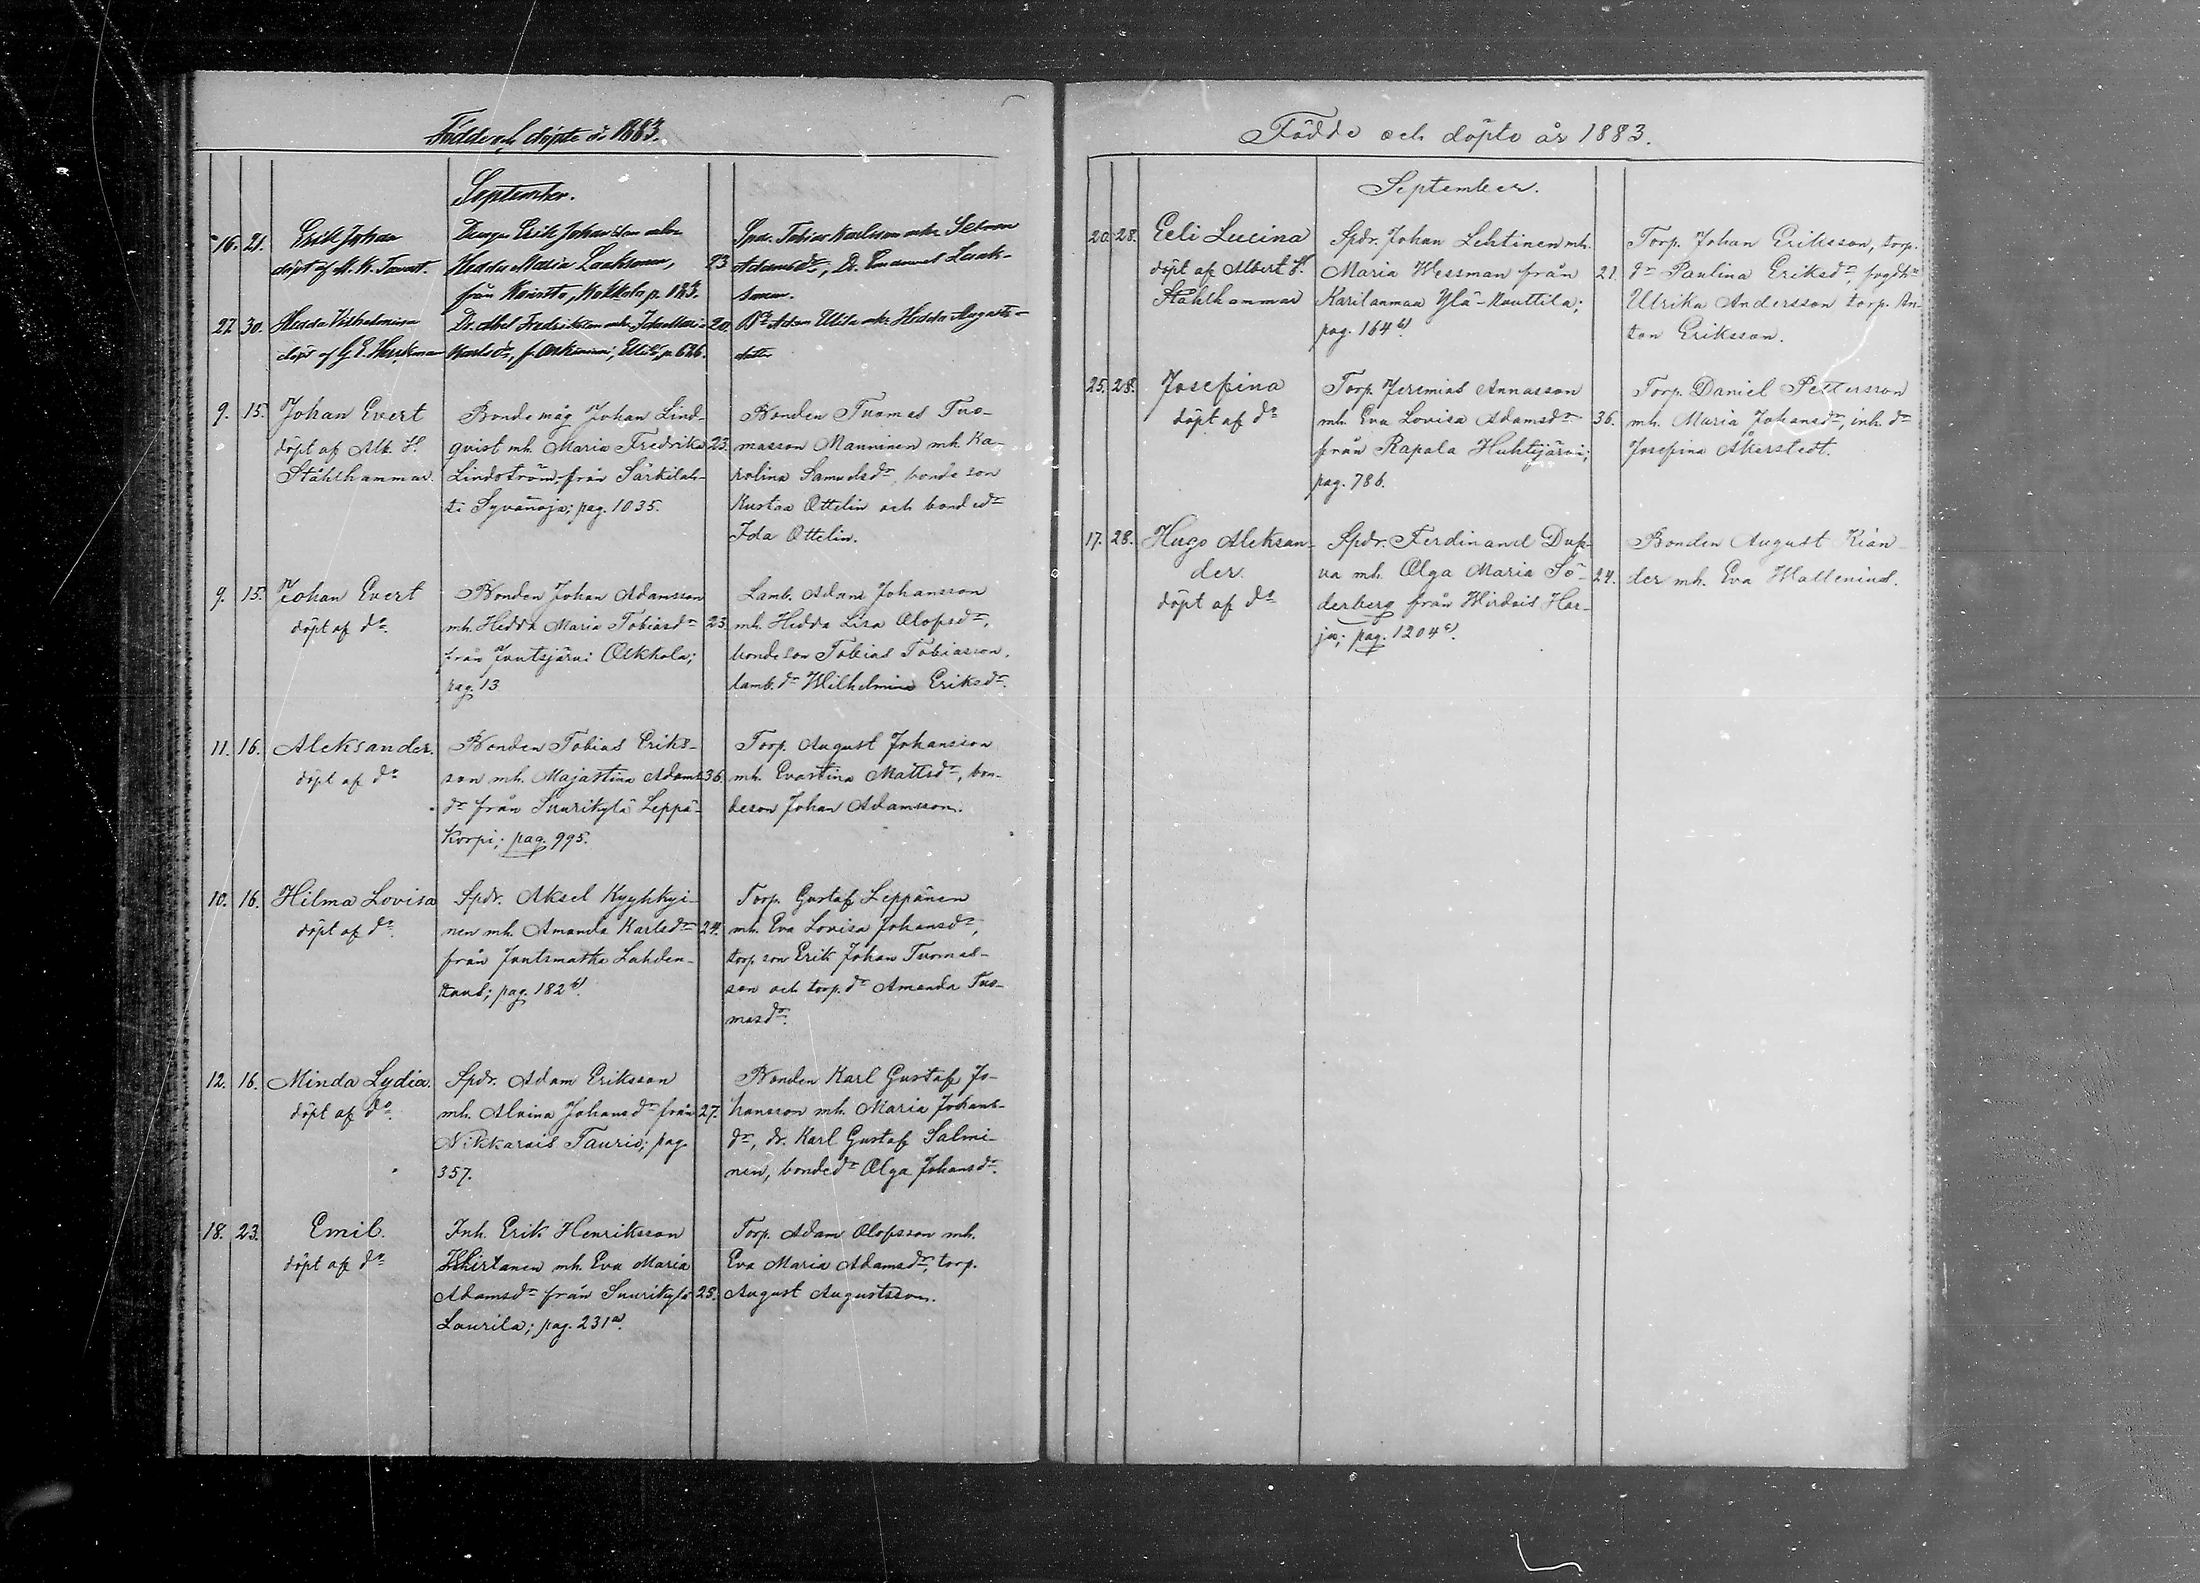 Födde och döpte år 1883.
September.
16. 21. Erik Johan
döpt af M. K. Tavast.
Drengen Erik Johansson mhu
Hedda Maria Laaksonen, 23
från Koivisto, Kokkola p. 183.
Spdr. Tobias Karlsson mhu Selma
Adamsdr, Dr. Emanuel Laak-
sonen.
27. 30. Hedda Vilhelmina
döpt af G. E.
Dr. Abel Fredriksson mhu Ida Maria 20.
Karlsdr, p. 626.
Adam Uusi mhu Hedda Augusta-
dotter
9. 15. Johan Evert
döpt af Alb. H.
Ståhlhammar.
Bondemåg Johan Lind-
qvist mh. Maria Fredrika 23.
Lindström, från Särkilah-
ti Syvänoja; pag. 1035.
Bonden Tuomas Tuo-
masson Manninen mh. Ka-
rolina Samuelsdr, bondeson
Kustaa Ottelin och bondedr
Ida Ottelin.
9. 15. Johan Evert
döpt af do.
Bonden Johan Adamsson
mh. Hedda Maria Tobiasdr 23.
från Joutsjärvi Olkkola;
pag. 13.
Lamb. Adam Johansson
mh. Hedda Lisa Olofsdr,
bondeson Tobias Tobiasson,
lamb. dr Wilhelmina Eriksdr.
11. 16. Aleksander.
döpt af do
Bonden Tobias Eriks-
son mh. Majastina Adams 36.
dr från Suurikylä Leppä-
korpi; pag. 995.
Torp. August Johansson
mh. Evastina Mattsdr, bon-
deson Johan Adamsson.
10. 16. Hilma Lovisa
döpt af do.
Spdr. Aksel Kyyhkyi-
nen mh. Amanda Karlsdr 24.
från Joutsmatka Lahden-
kaus; pag. 182 b).
Torp. Gustaf Leppänen
mh. Eva Lovisa Johansdr,
torp. son Erik Johan Tuomas-
son och torp. dr Amanda Tuo-
masdr.
12. 16. Minda Lydia.
döpt af do.
Spdr. Adam Eriksson
mh. Alvina Johansdr från 27.
Nikkarais Tauris; pag.
357.
Bonden Karl Gustaf Jo-
hansson mh. Maria Johans-
dr, dr. Karl Gustaf Salmi-
nen, bondedr Olga Johansdr.
18. 23. Emil.
döpt af do
Inh. Erik Henriksson
mh. Eva Maria
Adamsdr från Suurikylä 25.
Laurila; pag. 231 a).
Torp. Adam Olofsson mh.
Eva Maria Adamsdr, torp.
August Augustsson.
Födde och döpte år 1883.
September.
20. 28. Eeli Lucina
döpt af Albert H.
Ståhlhammar
Spdr. Johan Lehtinen mh.
Maria Wessman från 21.
Karilanmaa Ylä-Knuttila;
pag. 164 b)
Torp. Johan Eriksson, torp.
dr Paulina Eriksdr,
Ulrika Andersson torp. An-
ton Eriksson.
25. 28. Josefina
döpt af do
Torp. Jeremias Annasson
mh. Eva Lovisa Adamsdr 36.
från Rapala Huhtijärvi;
pag. 786.
Torp. Daniel Pettersson
mh. Maria Johansdr, inh. dr
Josefina Åkerstedt.
17. 28. Hugo Aleksan-
der.
döpt af do
Spdr. Ferdinand Duf-
va mh. Olga Maria Sö- 24.
derberg från Wirdois Har-
ju; pag. 1204 c).
Bonden August Kian-
der mh. Eva Wallenius.